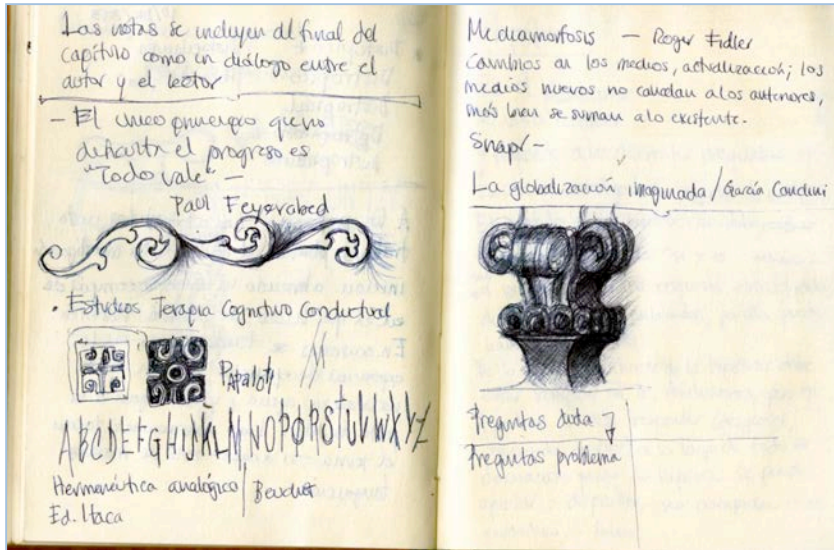 Las notas se incluyen al final del
capítulo como un diálogo entre el
autor y el lector
- El unico principio que no
dificulta el progreso es
"Todo vale" -
Paul Feyerabed
• Estudios Terapia Cognitivo Conductual
Papalotl
ABCDEFGHIJKLMNOPQRSTUVWXYZ
Hermenéutica analógico / Beuchot
Ed. Itaca
Mediamorfosis — Roger Fidler
Cambios en los medios, actualización; los
medios nuevos no cancelan a los anteriores,
más bien se suman a lo existente.
La globalización imaginada / García Canclini
Preguntas duda
Preguntas problema